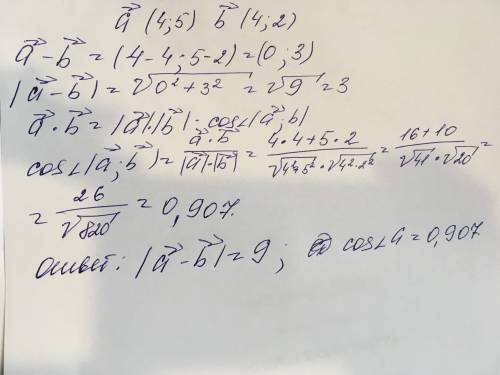 a⃗ (4;5) b⃗ (4;2)
a⃗ - b⃗ = (4-4; 5-2) = (0; 3)
|a⃗ - b⃗| = √0² + 3² = √9 = 3
a⃗ · b⃗ = |a⃗|·|b⃗| · cos∠|a⃗; b|
cos∠|a⃗; b⃗) = a⃗·b⃗ / |a⃗|·|b⃗| = 4·4+5·2 / √4²+5² · √4²·2² = 16+10 / √41 · √20 =
= 26 / √820 = 0,907.
ответ: |a⃗ - b⃗| = 9; cos∠a = 0,907